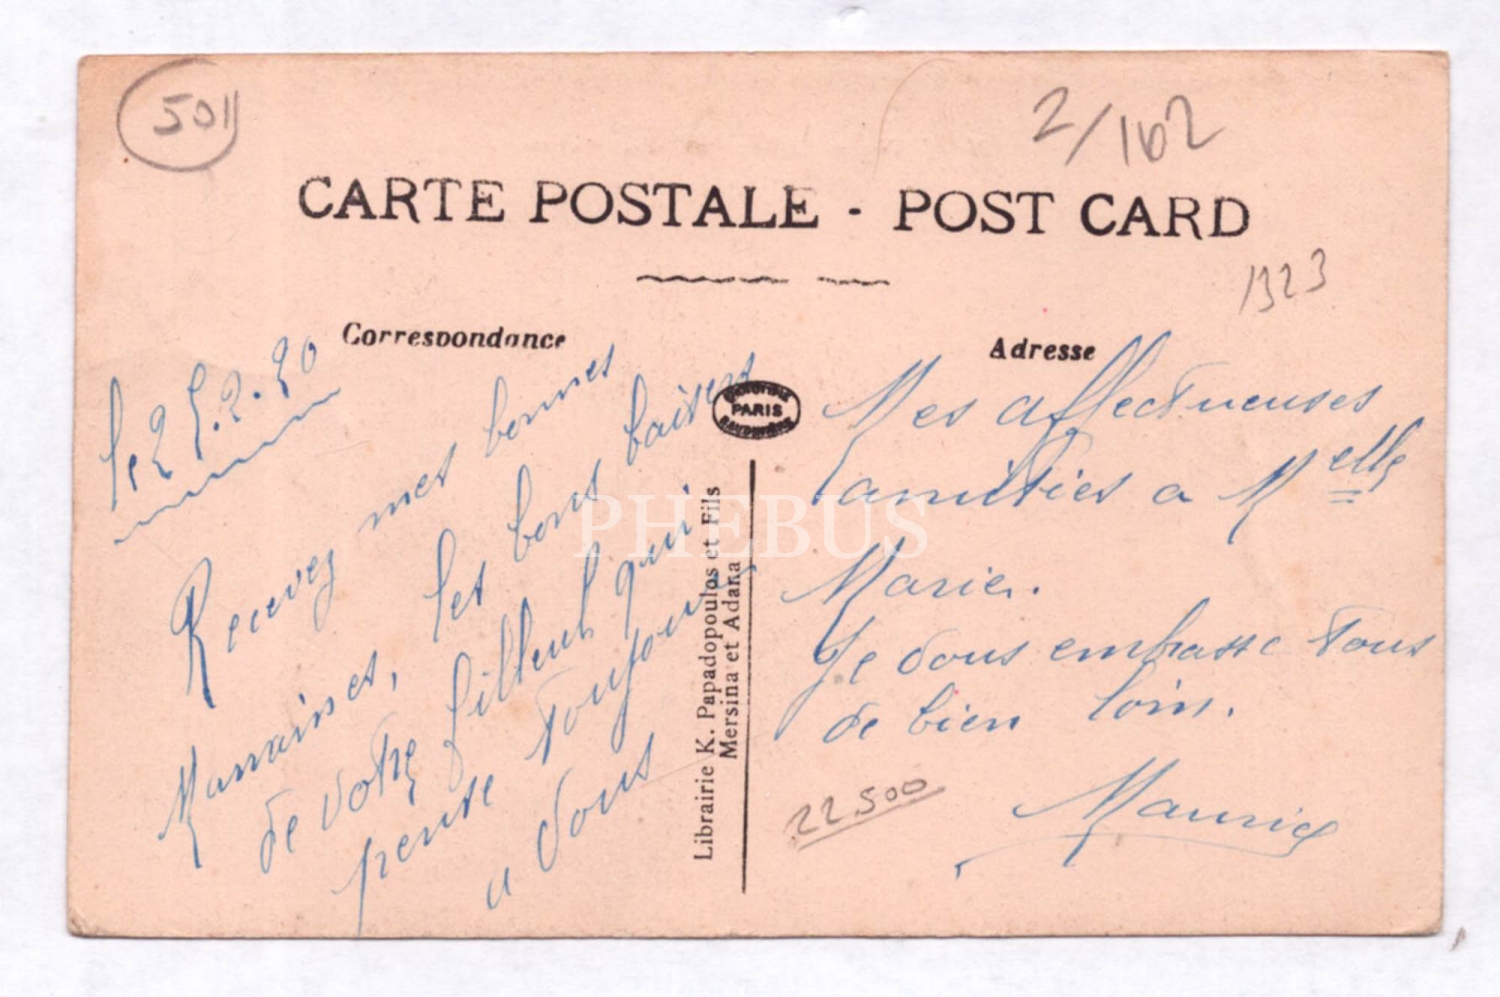 501
2/162
CARTE POSTALE - POST CARD
1323
Correspondance
Adresse
le 25.2.20
Recevez mes bonnes
Marraines, les bons baisers
de votre filleul qui
pense toujours
a vous
PARIS
Librairie K. Papadopoulos et Fils
Mersina et Adana
PHEBUS
Mes affectueuses
amitiés a Melle
Marie.
Je vous embrasse tous
de bien loin.
Maurice
22.500